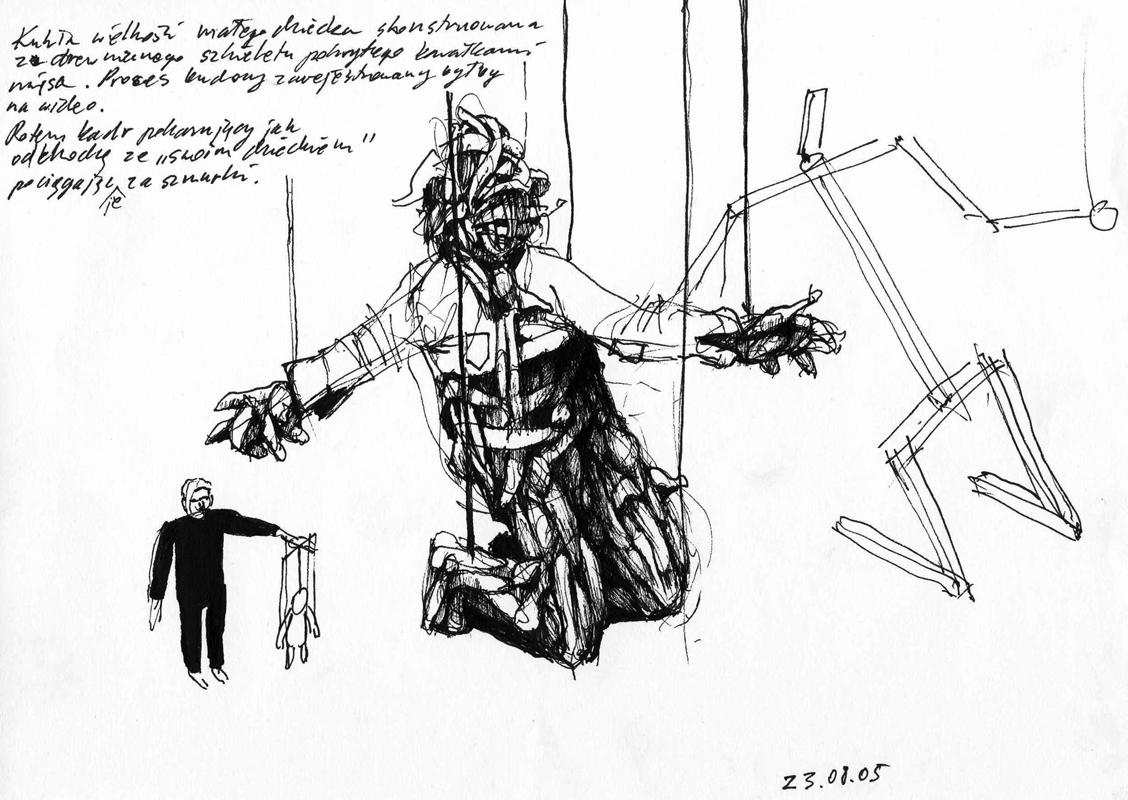 Kukła wielkości małego dziecka skonstruowana
ze drewnianego szkieletu pokrytego kawałkami
mięsa. Proces budowy zarejestrowany byłby
na wideo.
Potem kadr pokazujący jak
odchodzę ze „swoim dzieckiem"
pociągając je za sznurki.
23.08.05